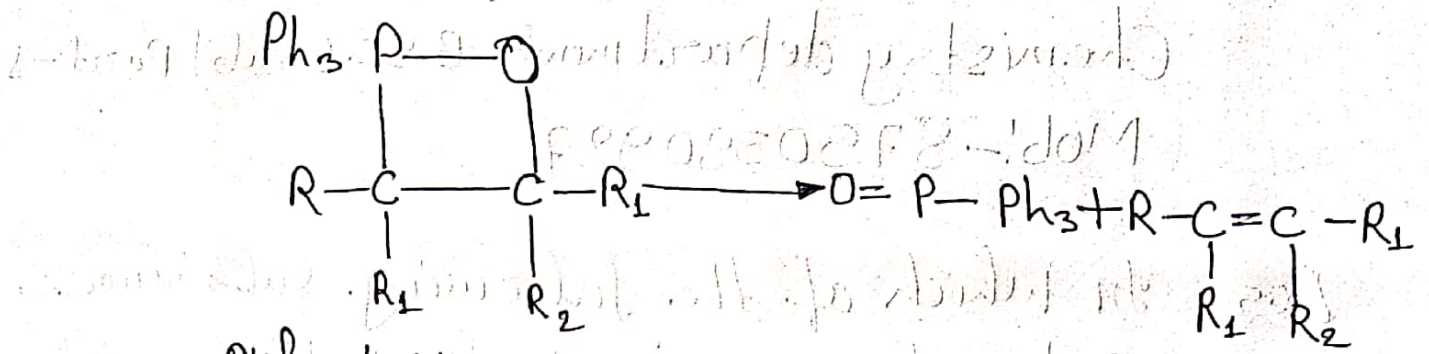 Ph₃ P—O
R—C—C—R₁ → O= P— Ph₃ + R—C=C—R₁
R₁ R₂ R₁ R₂